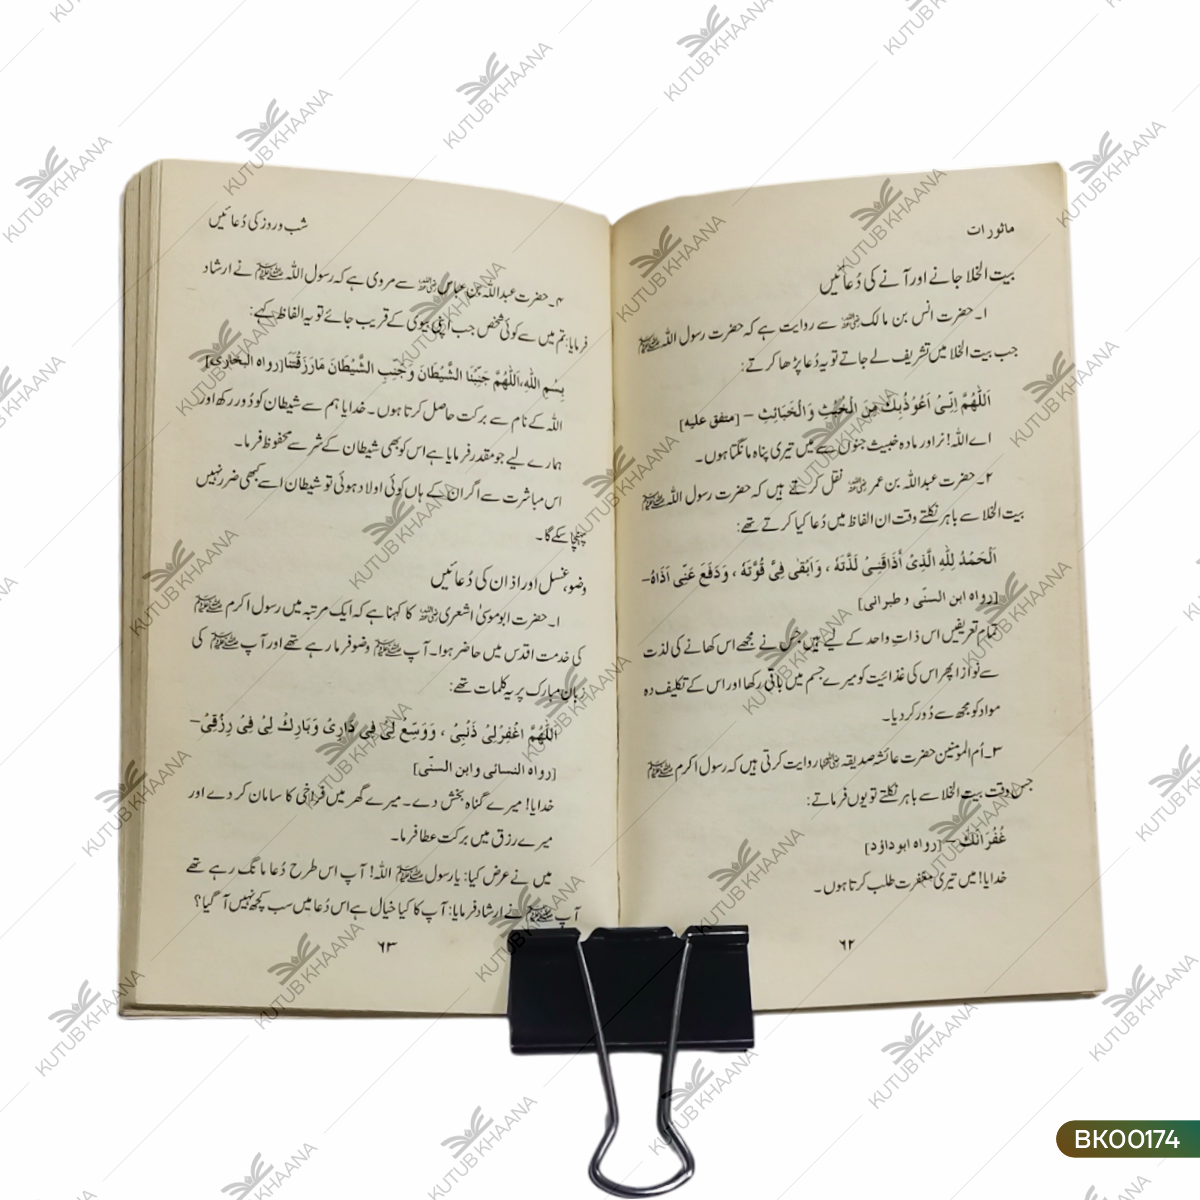 ماثورات
بیت الخلا جانے اور آنے کی دُعائیں
۱۔ حضرت انس بن مالک رضی اللہ عنہ سے روایت ہے کہ حضرت رسول اللہ ﷺ
جب بیت الخلا میں تشریف لے جاتے تو یہ دُعا پڑھا کرتے:
اَللّٰهُمَّ اِنِّیْ اَعُوْذُبِكَ مِنَ الْخُبُثِ وَالْخَبَائِثِ – [متفق علیه]
اے اللہ! نر اور مادہ خبیث جنوں سے میں تیری پناہ مانگتا ہوں۔
۲۔ حضرت عبداللہ بن عمر رضی اللہ عنہ نقل کرتے ہیں کہ حضرت رسول اللہ ﷺ
بیت الخلا سے باہر نکلتے وقت ان الفاظ میں دُعا کیا کرتے تھے:
اَلْحَمْدُ لِلّٰهِ الَّذِیْ اَذَاقَنِیْ لَذَّتَهٗ ، وَاَبْقٰی فِیَّ قُوَّتَهٗ ، وَدَفَعَ عَنِّی اَذَاهُ–
[رواه ابن السنّی و طبرانی]
تمام تعریفیں اس ذاتِ واحد کے لیے ہیں جس نے مجھے اس کھانے کی لذت
سے نوازا پھر اس کی غذائیت کو میرے جسم میں باقی رکھا اور اس کے تکلیف دہ
مواد کو مجھ سے دُور کر دیا۔
۳۔ اُم المومنین حضرت عائشہ صدیقہ رضی اللہ عنہا روایت کرتی ہیں کہ رسول اکرم ﷺ
جس وقت بیت الخلا سے باہر نکلتے تو یوں فرماتے:
غُفْرَانَكَ– [رواه ابو داؤد]
خدایا! میں تیری مغفرت طلب کرتا ہوں۔
۶۲
شب و روز کی دُعائیں
۴۔ حضرت عبداللہ بن عباس رضی اللہ عنہ سے مروی ہے کہ رسول اللہ ﷺ نے ارشاد
فرمایا: تم میں سے کوئی شخص جب اپنی بیوی کے قریب جائے تو یہ الفاظ کہے:
بِسْمِ اللّٰهِ، اَللّٰهُمَّ جَنِّبْنَا الشَّيْطَانَ وَجَنِّبِ الشَّيْطَانَ مَارَزَقْتَنَا [رواه البخاری]
اللہ کے نام سے برکت حاصل کرتا ہوں۔ خدایا ہم سے شیطان کو دُور رکھ اور
ہمارے لیے جو مقدر فرمایا ہے اس کو بھی شیطان کے شر سے محفوظ فرما۔
اس مباشرت سے اگر ان کے ہاں کوئی اولاد ہوئی تو شیطان اسے کبھی ضرر نہیں
پہنچا سکے گا۔
وضو، غسل اور اذان کی دُعائیں
۱۔ حضرت ابوموسیٰ اشعری رضی اللہ عنہ کا کہنا ہے کہ ایک مرتبہ میں رسول اکرم ﷺ
کی خدمت اقدس میں حاضر ہوا۔ آپ ﷺ وضو فرما رہے تھے اور آپ ﷺ کی
زبان مبارک پر یہ کلمات تھے:
اَللّٰهُمَّ اغْفِرْلِیْ ذَنْبِیْ ، وَوَسِّعْ لِیْ فِیْ دَارِیْ وَبَارِكْ لِیْ فِیْ رِزْقِیْ–
[رواه النسائی وابن السنّی]
خدایا! میرے گناہ بخش دے۔ میرے گھر میں فراخی کا سامان کر دے اور
میرے رزق میں برکت عطا فرما۔
میں نے عرض کیا: یا رسول ﷺ اللہ! آپ اس طرح دُعا مانگ رہے تھے
آپ ﷺ نے ارشاد فرمایا: آپ کا کیا خیال ہے اس دُعا میں سب کچھ نہیں آ گیا؟
۶۳
KUTUB KHAANA
BK00174